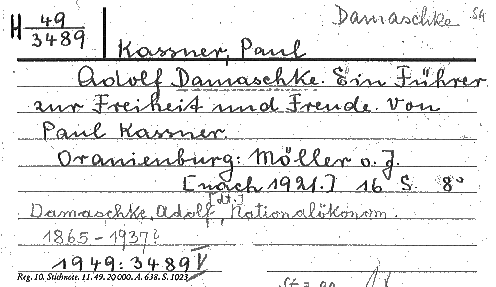 Damaschke S4
H 49/3489
Kassner, Paul
Adolf Damaschke. Ein Führer
zur Freiheit und Freude. Von
Paul Kassner.
Oranienburg: Möller o. J.
[nach 1921.] 16 S. 8°
Damaschke, Adolf, [dt.] Nationalökonom.
1865-1937
1949: 3489
Reg. 10. Stichnote. 11. 49. 20000. A. 638. S. 1023